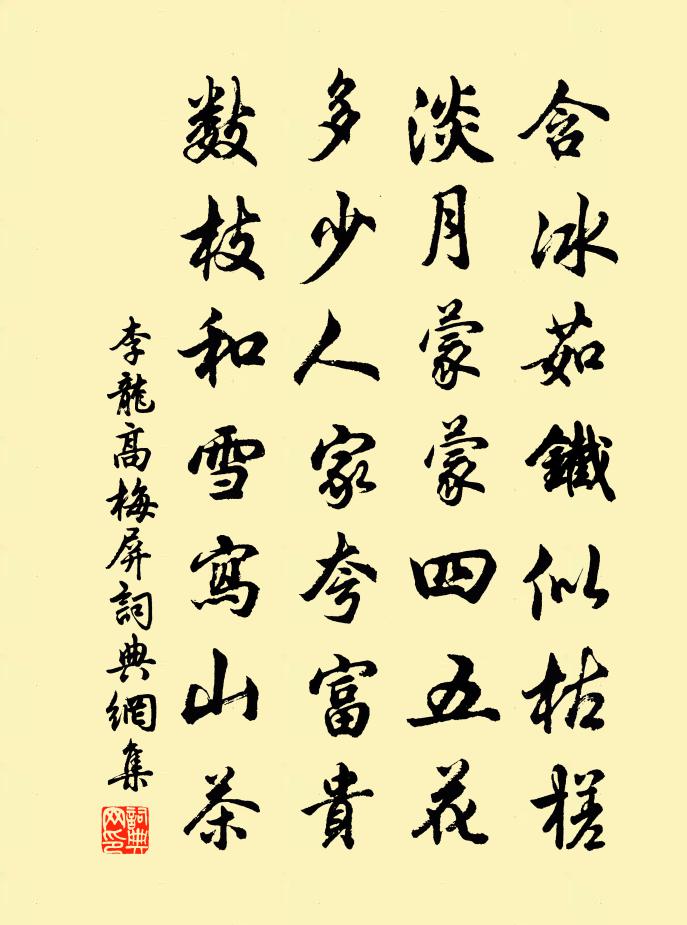 含冰茹鐵似枯槎
淡月蒙蒙四五花
多少人家夸富貴
數枝和雪寫山茶
李龍高梅屏詞典網集
詞典網印